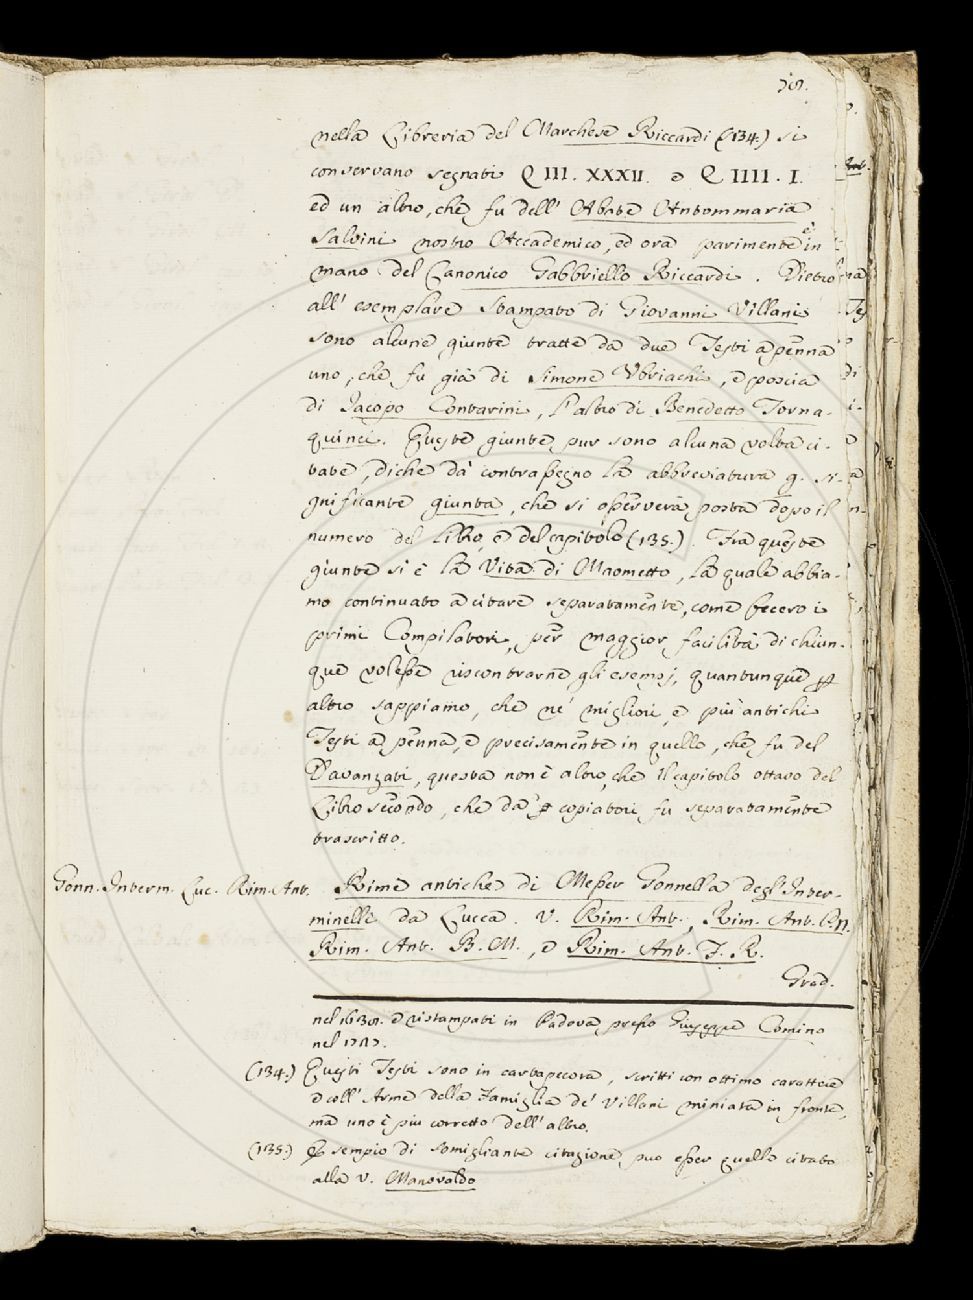 nella Libreria del Marchese Riccardi (134.) si
conservano segnati Q III. XXXII. e Q IIII. I.
ed un altro, che fu dell' Abate Antommaria
Salvini nostro Accademico, ed ora parimente è in
mano del Canonico Gabbriello Riccardi. Dietro
all' esemplare Stampato di Giovanni Villani
sono alcune giunte tratte da due Testi a penna
uno, che fu già di Simone Ubriachi, e poscia
di Jacopo Contarini, l'altro di Benedetto Torna-
quinci. Queste giunte pur sono alcuna volta ci-
tate, di che dà contrassegno la abbreviatura g. si-
gnificante giunta, che si osserverà posta dopo il
numero del Libro, e del capitolo (135.). Tra queste
giunte si è la Vita di Maometto, la quale abbia-
mo continuato a citare separatamente, come fecero i
primi Compilatori, per maggior facilità di chiun-
que volesse riscontrarne gli esempj, quantunque p
altro sappiamo, che ne' migliori, e più antichi
Testi a penna, e precisamente in quello, che fu del
Davanzati, questa non è altro, che il capitolo ottavo del
Libro secondo, che da' copiatori fu separatamente
trascritto.
Gonn. Interm. Luc. Rim. Ant. Rime antiche di Messer Gonnella degl' Inter-
minelli da Lucca. V. Rim. Ant., Rim. Ant. P. N.
Rim. Ant. B. M., e Rim. Ant. F. R.
Grad.
e ristampati in Padova presso Giuseppe Comino
(134.) Questi Testi sono in cartapecora, scritti con ottimo carattere
e coll' Arme della Famiglia de' Villani miniata in fronte,
ma uno è più corretto dell' altro.
(135.) Esempio di somigliante citazione può esser quello citato
alla V. Manovaldo